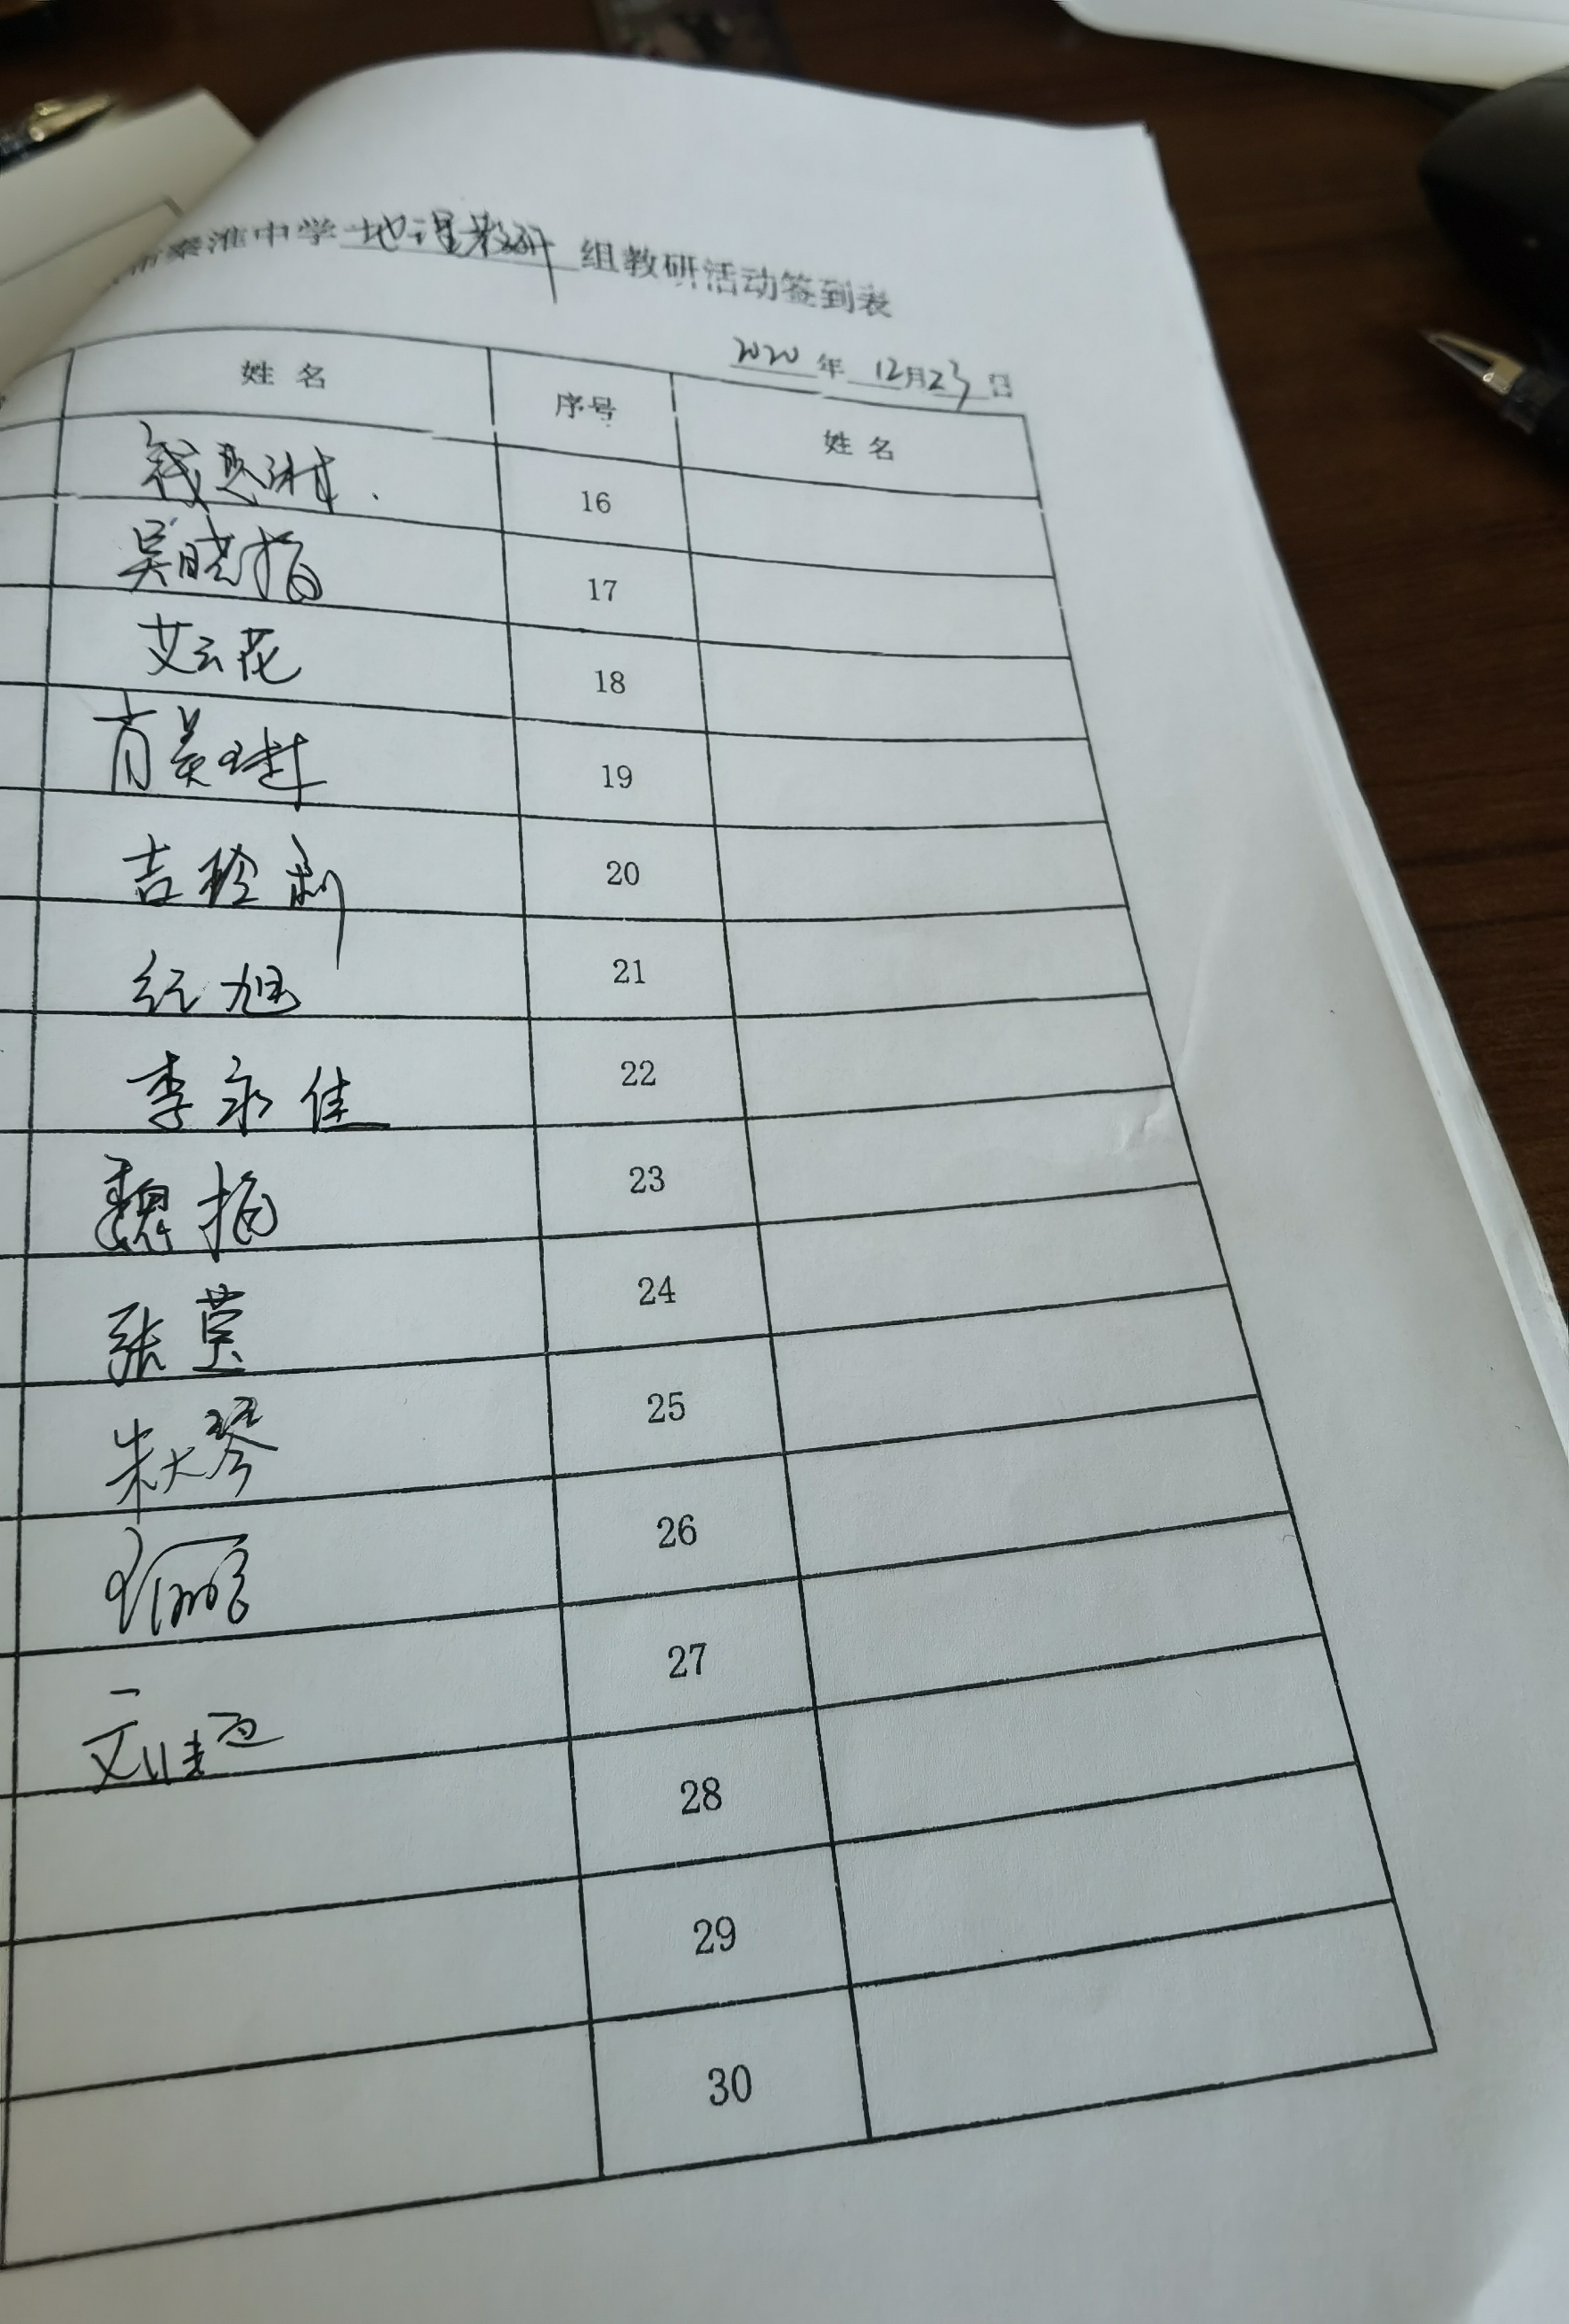 市秦淮中学 地理教研 组教研活动签到表
2020 年 12月23日
姓 名 序号 姓 名
钱思琳 16
吴晓梅 17
艾云花 18
肖美琏 19
吉玲利 20
红旭 21
李永佳 22
魏梅 23
张萱 24
朱大琴 25
26
文佳 27
28
29
30